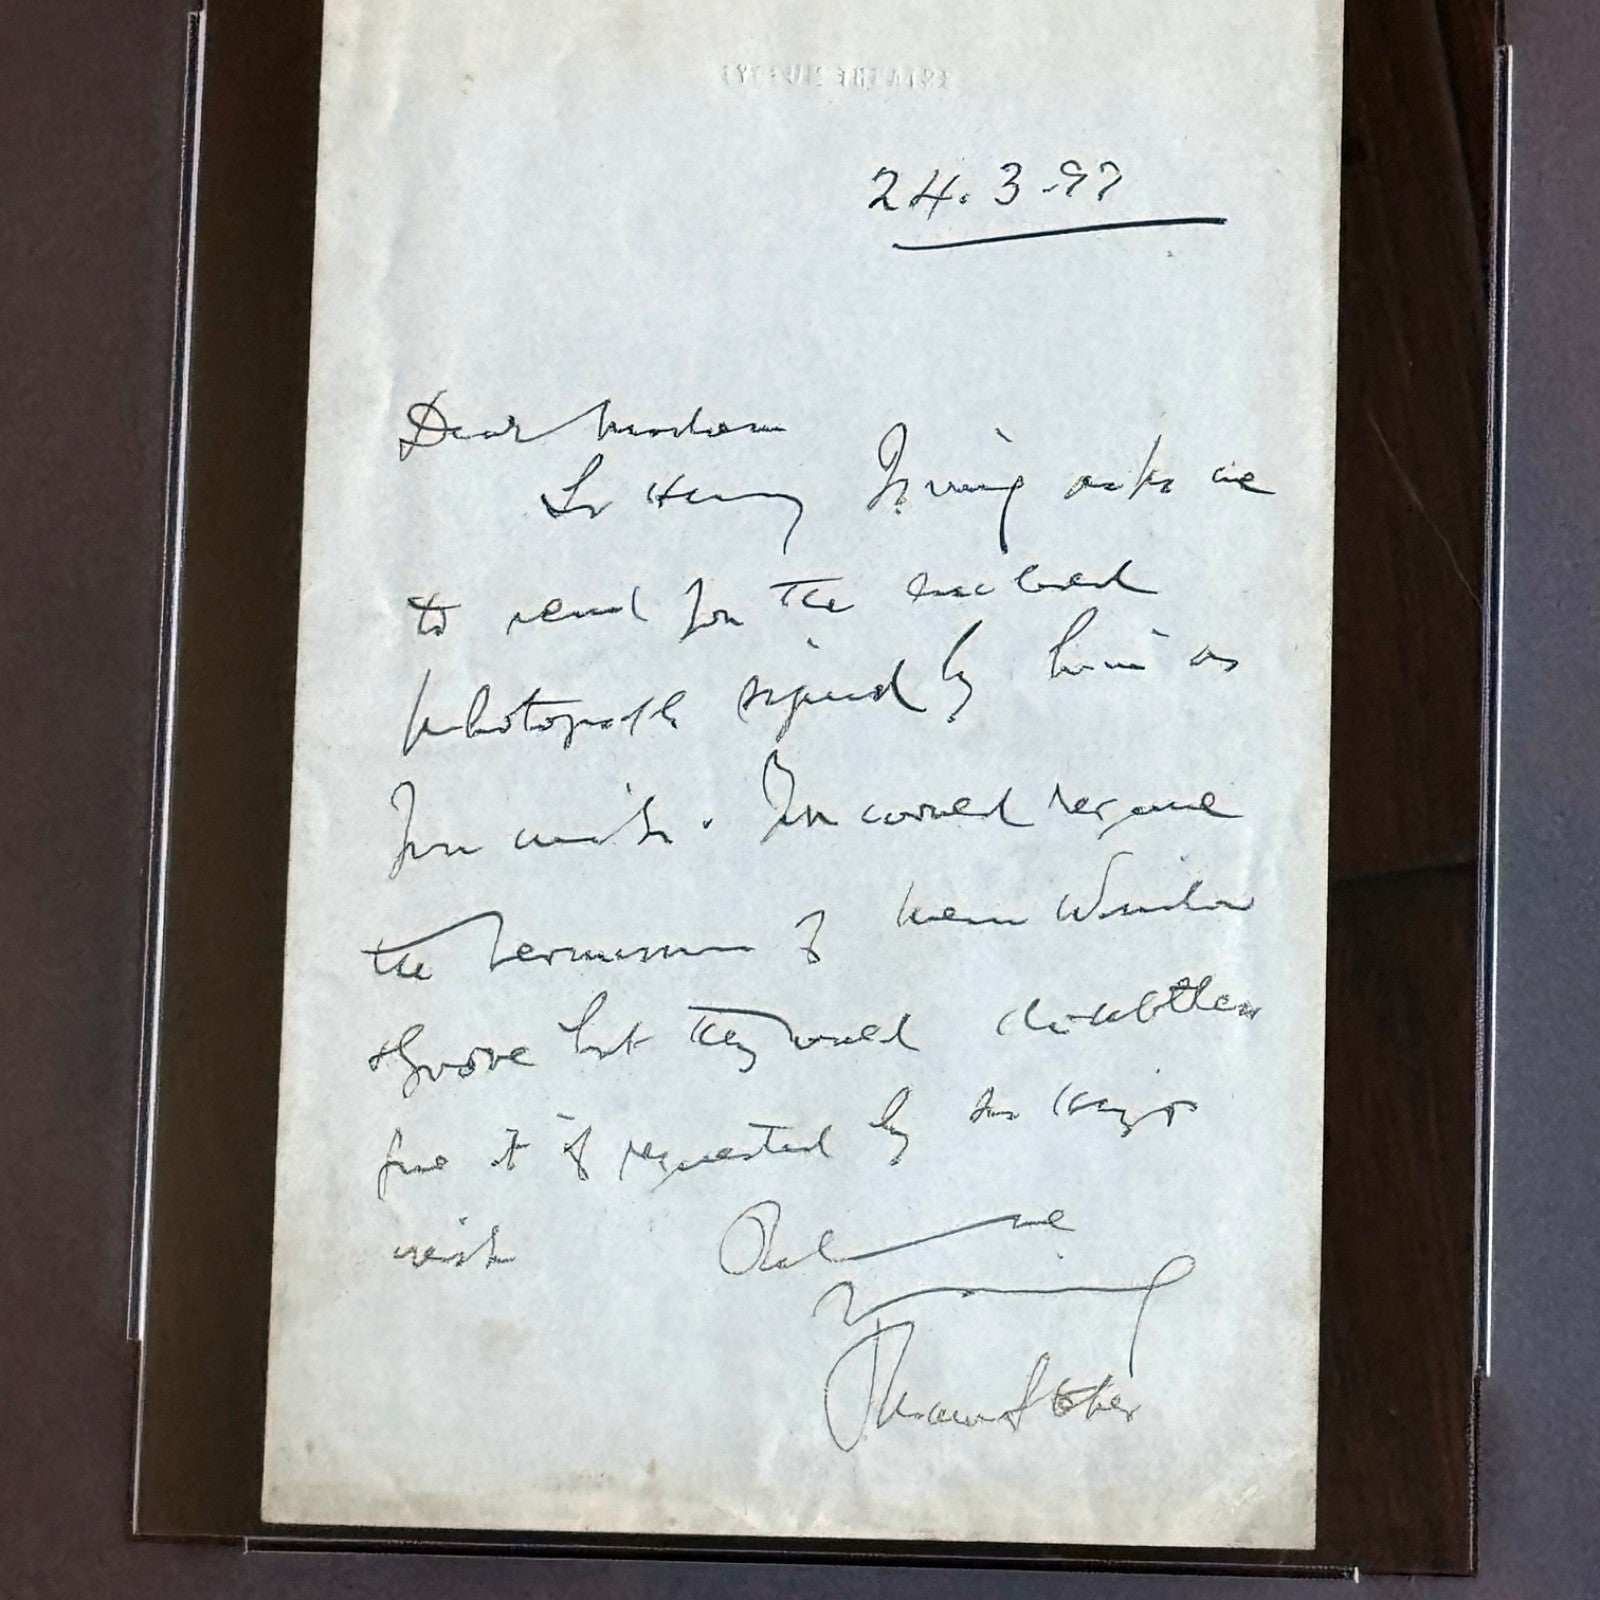 24.3.97
Dear Madam
Sir Henry Irving asks me
to send you the enclosed
photograph signed by him as
you wish. You would require
the permission of Mess Window
& Grove but they would doubtless
give it if requested by
wish
Yours
Bram Stoker